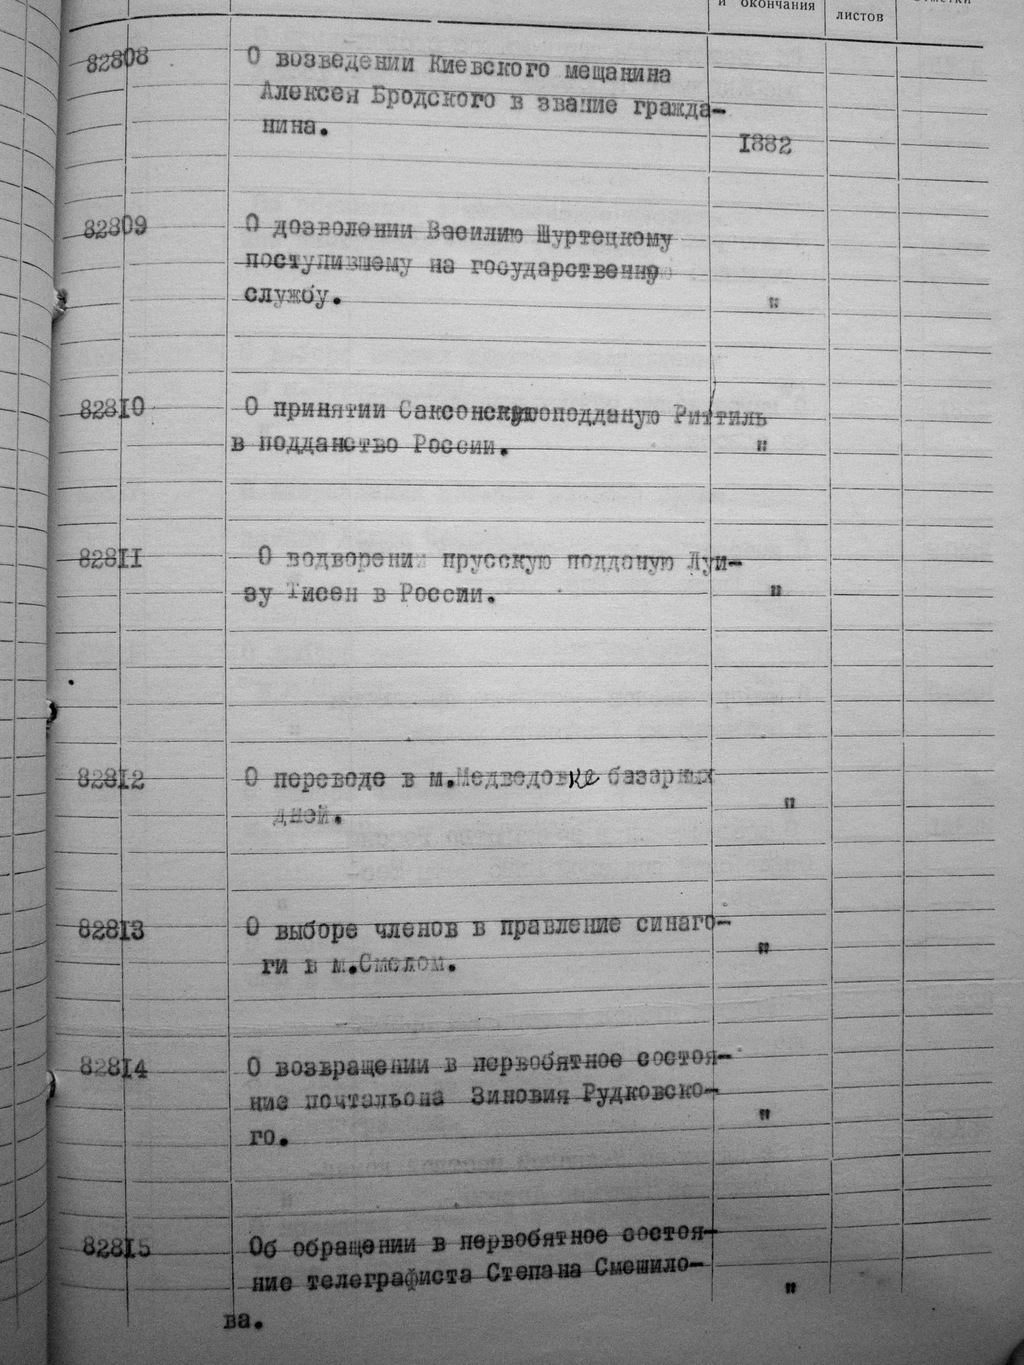 и окончания
листов
82808 О возведении Киевского мещанина
Алексея Бродского в звание гражда-
нина.
1882
82809 О дозволении Василию Шуртецкому
поступившему на государственную
службу. "
82810 О принятии Саксонскую подданую Риттиль
в подданство России. "
82811 О водворении прусскую подданую Луи-
зу Тисен в России. "
82812 О переводе в м.Медведовке базарных
дней. "
82813 О выборе членов в правление синаго-
ги в м.Смелом. "
82814 О возвращении в первобятное состоя-
ние почтальона Зиновия Рудковско-
го. "
82815 Об обращении в первобятное состоя-
ние телеграфиста Степана Смешило-
ва. "